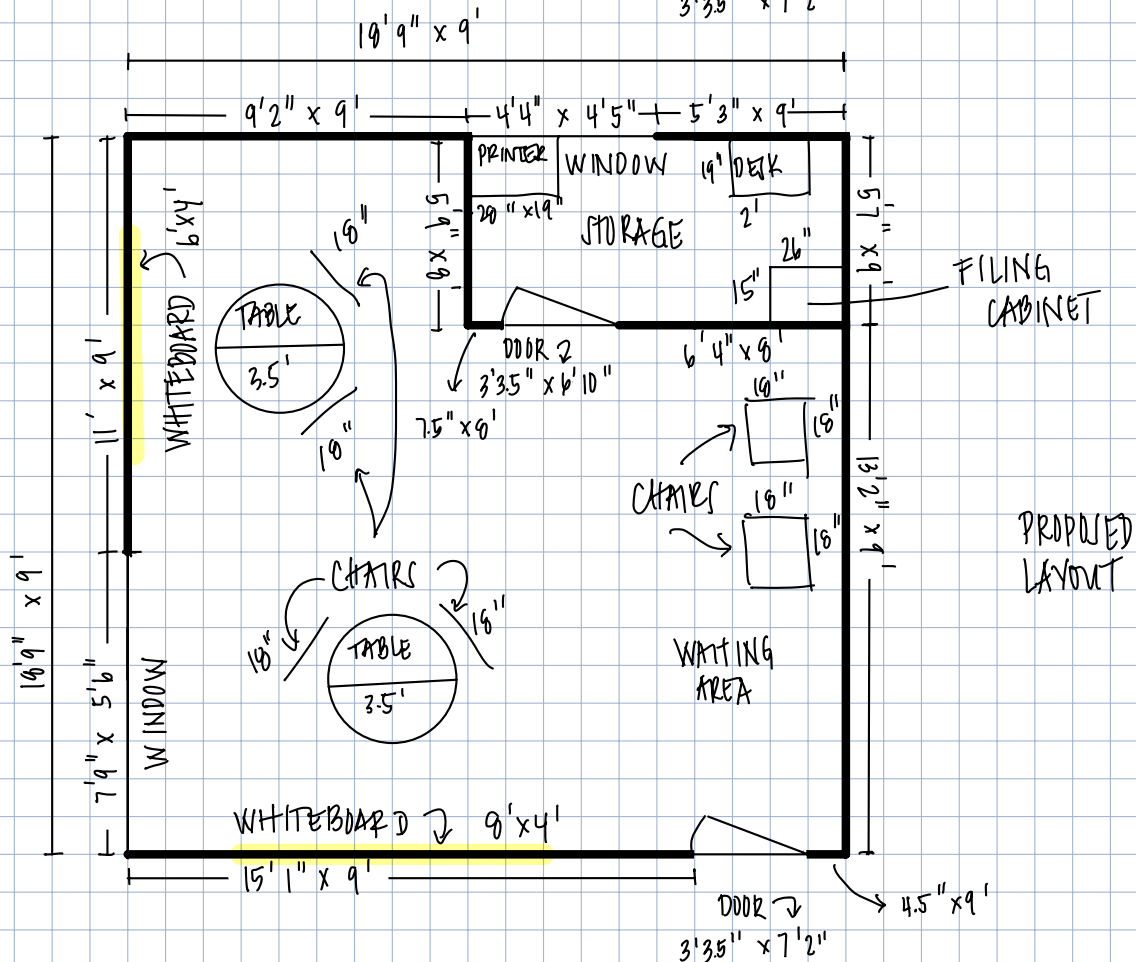 3'3.5" x 7'2"
18'9" x 9'
9'2" x 9'
4'4" x 4'5"
5'3" x 9'
PRINTER
28" x19"
WINDOW
STORAGE
19"
DESK
2'
26"
15"
FILING
CABINET
5'7" x 9'
5'9" x 8'
6'x4'
WHITEBOARD
11' x 9'
18"
TABLE
3.5'
18"
DOOR
3'3.5" x 6'10"
7.5" x8'
6'4" x 8'
18"
18"
CHAIRS
18"
18"
13'2" x 9'
PROPOSED
LAYOUT
18'9" x 9'
CHAIRS
18"
18"
TABLE
3.5'
WAITING
AREA
7'9" x 5'6"
WINDOW
WHITEBOARD 8'x4'
15'1" x 9'
DOOR
3'3.5" x 7'2"
4.5" x9'